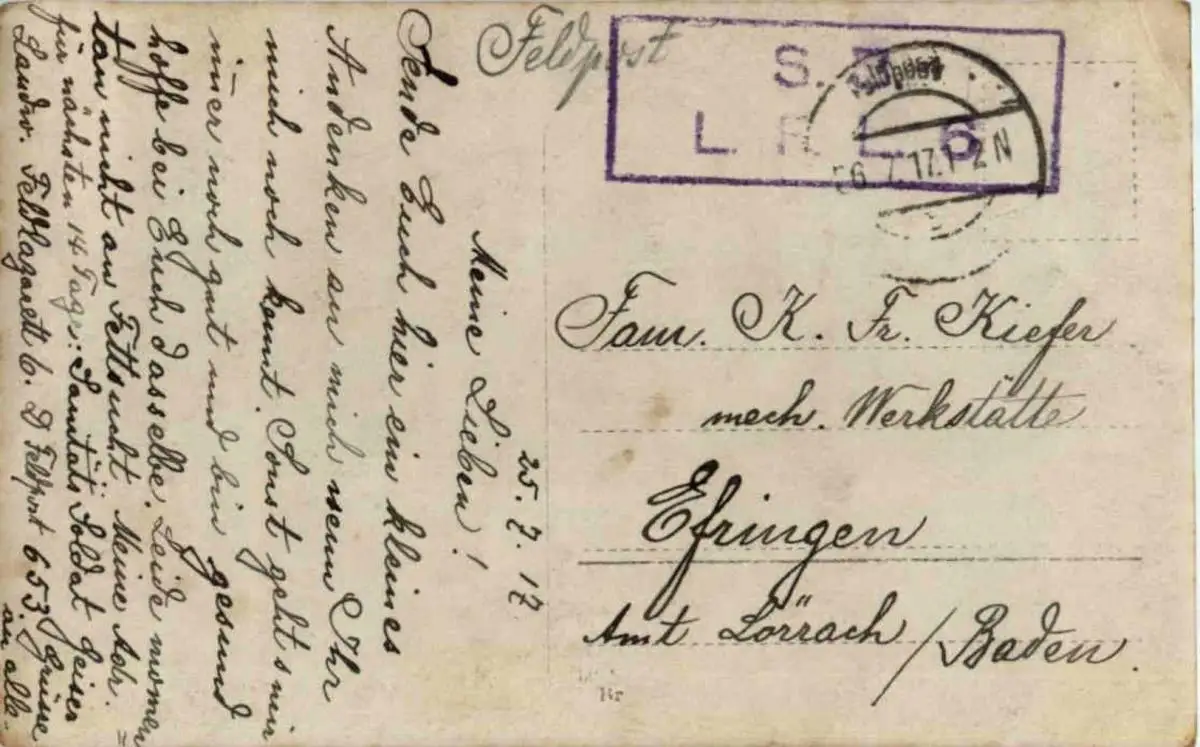 Feldpost
S. B.
L. R. 5
26.7.17.1-2N
25.7.17
Meine Lieben!
Sende Euch hier ein kleines
Andenken an mich wenn Ihr
mich noch kennt. Sonst geht's mir
imer noch gut und bin gesund
hoffe bei Euch dasselbe. Leide momen
tan nicht an Fettsucht. Meine Adr. =
für nächsten 14 Tage: Sanitäts Soldat Geiser
Landw. Feldlazarett 6. D Feldpost 653 Grüsse
an alle.
Fam. K. Fr. Kiefer
mech. Werkstätte
Efringen
Amt Lörrach / Baden.